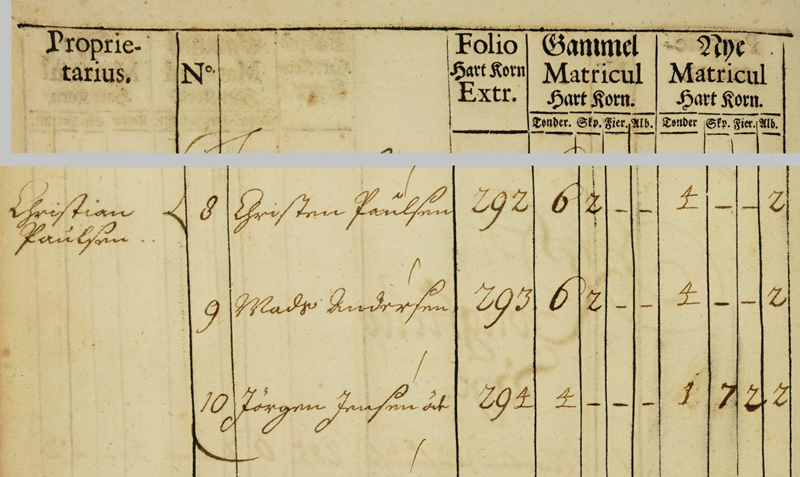 Proprie-
tarius.
No.
Folio
Hart Korn
Extr.
Gammel
Matricul
Hart Korn.
Tønder. Skp. Fier. Alb.
Nye
Matricul
Hart Korn.
Tønder Skp. Fier. Alb.
Christian
Paulsen ..
8 Christen Paulsen 292 6 2 - - 4 - - 2
9 Mads Andersen 293 6 2 - - 4 - - 2
10 Jörgen Jensen öde 294 4 - - - 1 7 2 2